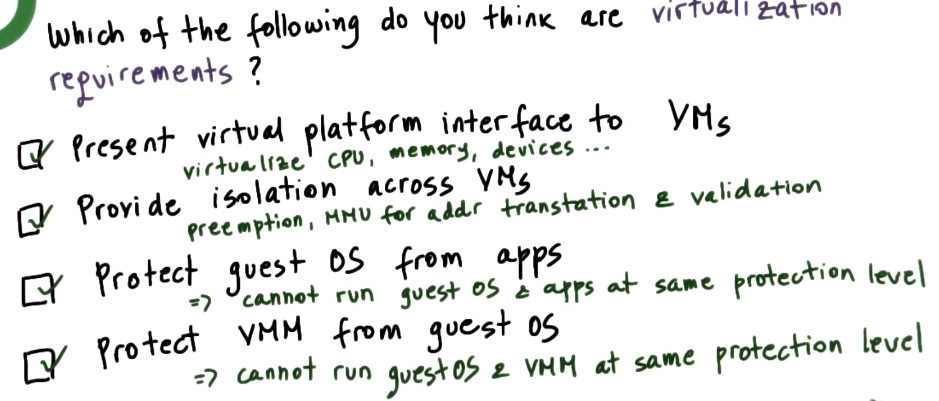 Which of the following do you think are virtualization
requirements ?
Present virtual platform interface to VMs
virtualize CPU, memory, devices ...
Provide isolation across VMs
preemption, MMU for addr transtation & validation
Protect guest OS from apps
=> cannot run guest OS & apps at same protection level
Protect VMM from guest OS
=> cannot run guest OS & VMM at same protection level